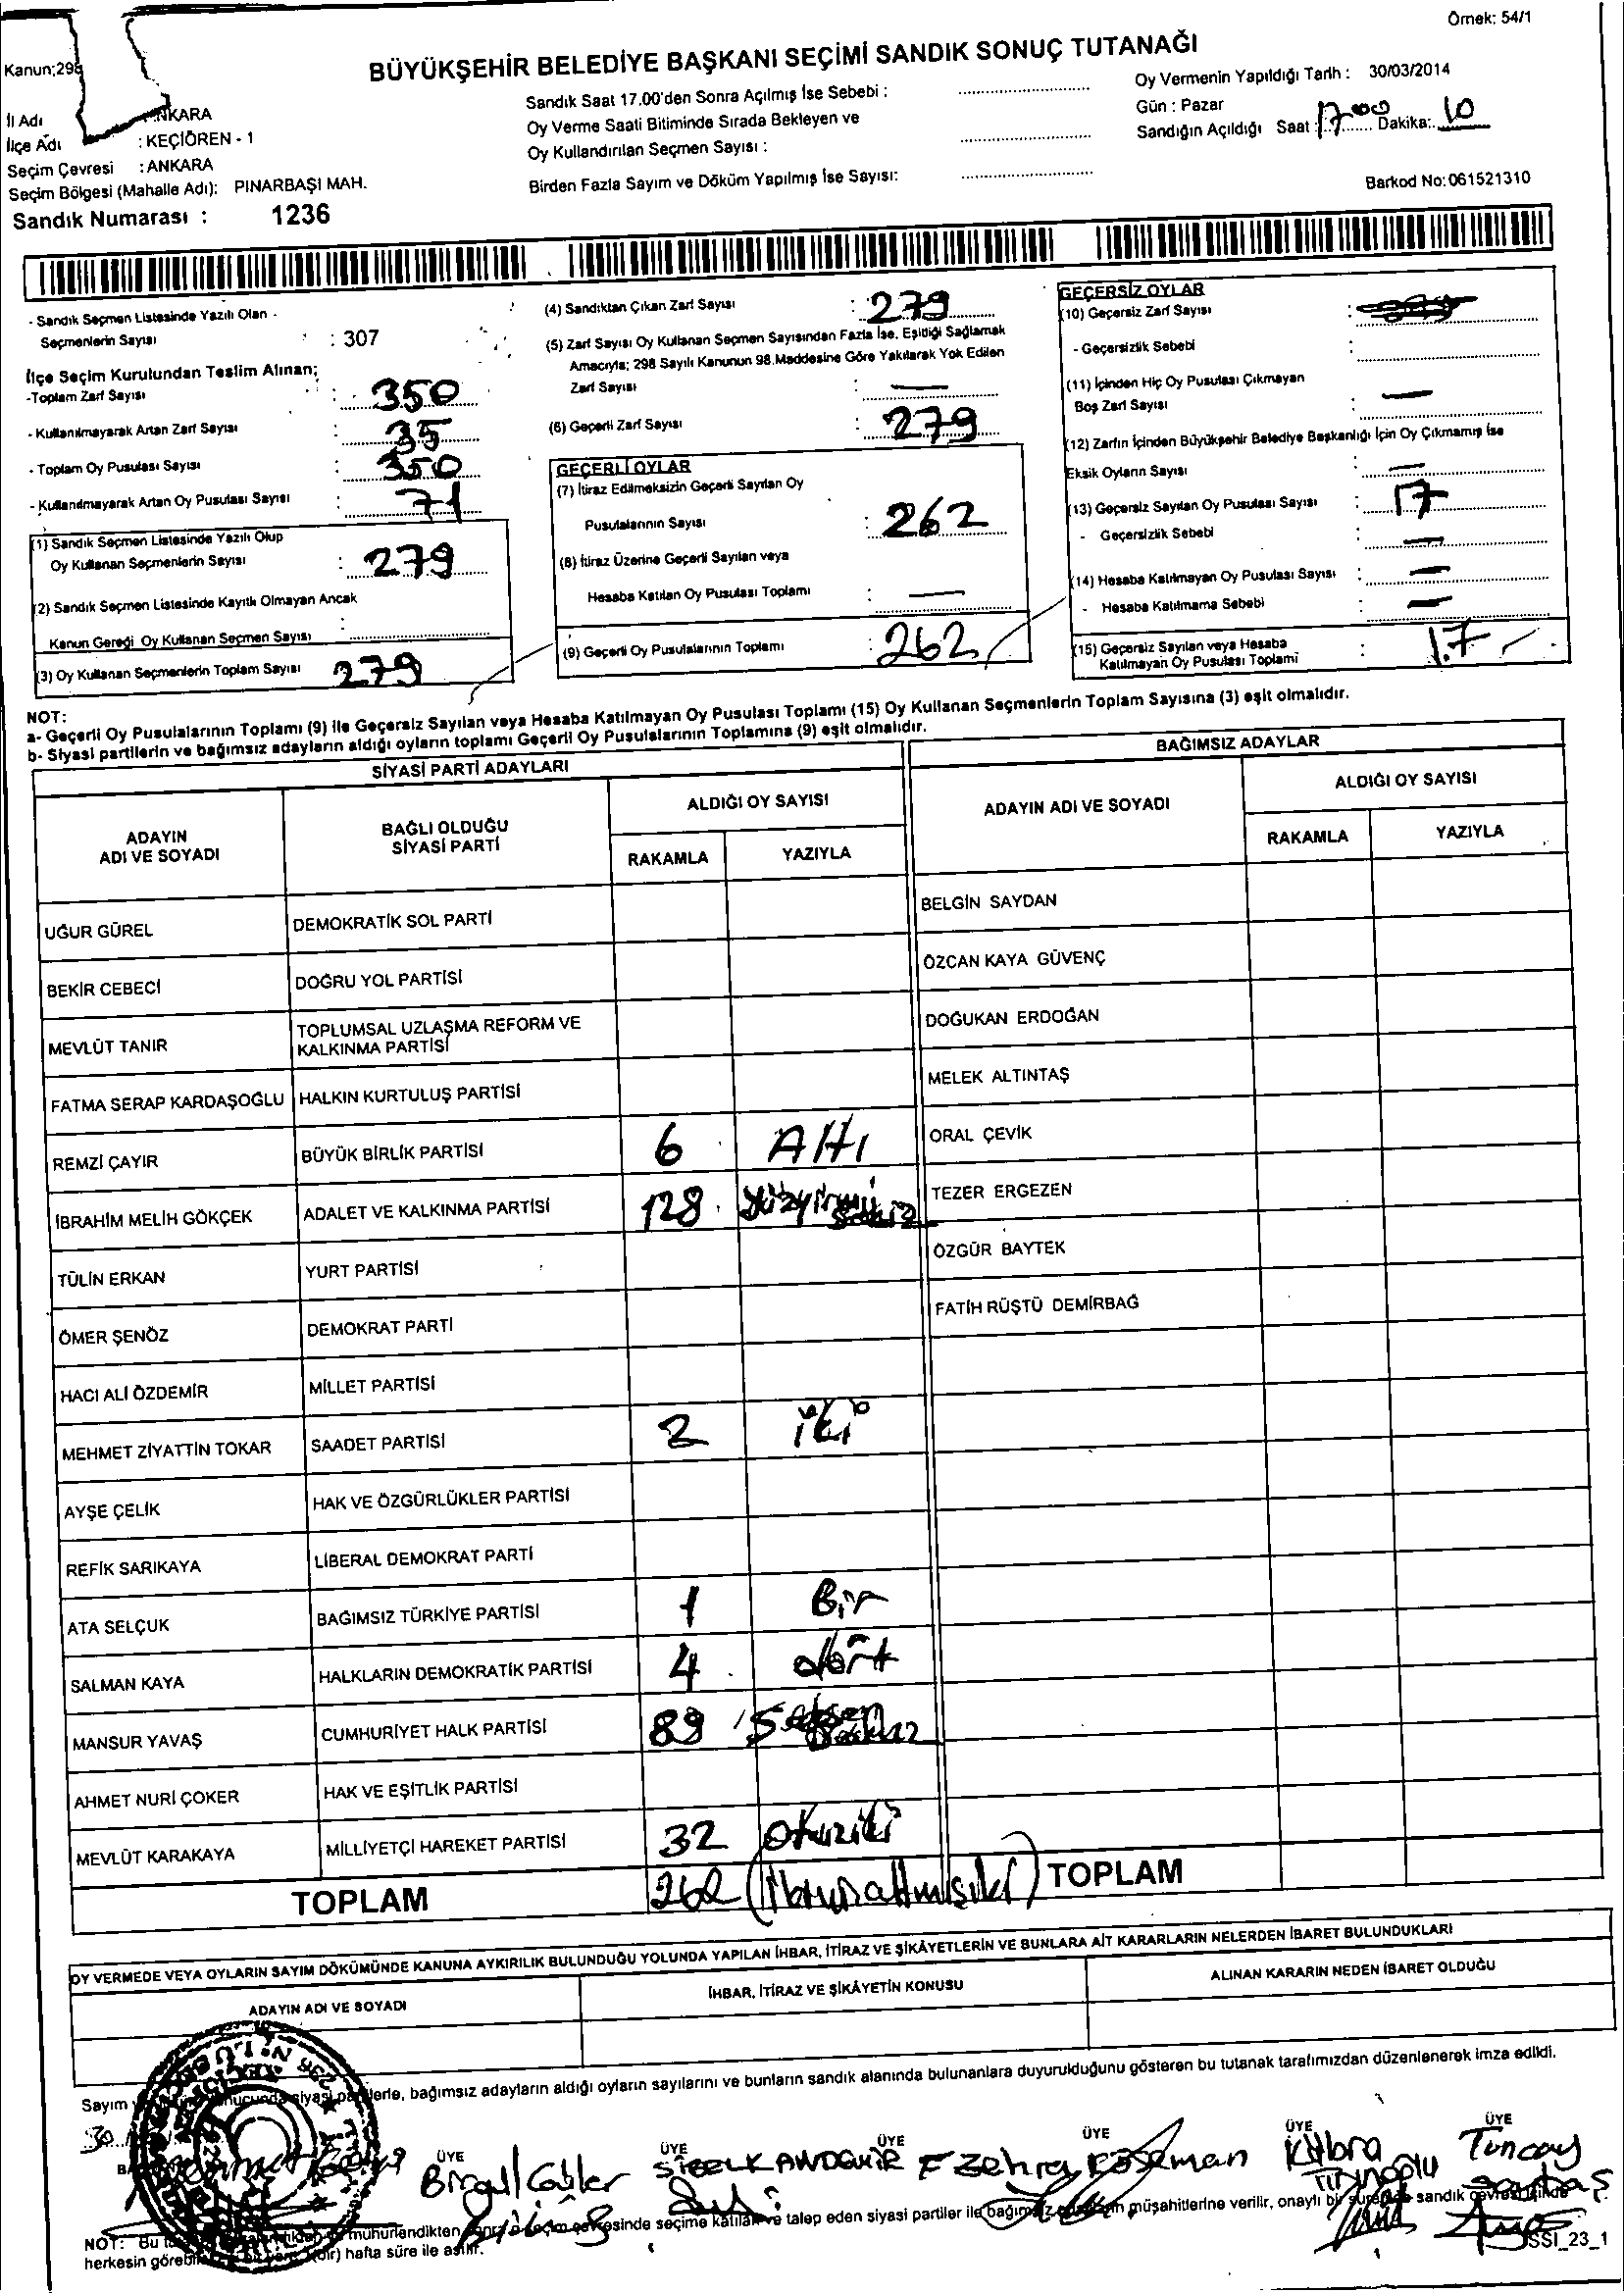 Örnek: 54/1
Kanun;298
BÜYÜKŞEHİR BELEDİYE BAŞKANI SEÇİMİ SANDIK SONUÇ TUTANAĞI
İl Adı ANKARA
İlçe Adı : KEÇİÖREN - 1
Seçim Çevresi : ANKARA
Seçim Bölgesi (Mahalle Adı): PINARBAŞI MAH.
Sandık Numarası : 1236
Sandık Saat 17.00'den Sonra Açılmış İse Sebebi :
Oy Verme Saati Bitiminde Sırada Bekleyen ve
Oy Kullandırılan Seçmen Sayısı :
Birden Fazla Sayım ve Döküm Yapılmış İse Sayısı:
Oy Vermenin Yapıldığı Tarih : 30/03/2014
Gün : Pazar
Sandığın Açıldığı Saat : 17.00 Dakika: 10
Barkod No: 061521310
- Sandık Seçmen Listesinde Yazılı Olan -
Seçmenlerin Sayısı : 307
İlçe Seçim Kurulundan Teslim Alınan;
-Toplam Zarf Sayısı : 350
- Kullanılmayarak Artan Zarf Sayısı : 35
- Toplam Oy Pusulası Sayısı : 350
- Kullanılmayarak Artan Oy Pusulası Sayısı : 71
(1) Sandık Seçmen Listesinde Yazılı Olup
Oy Kullanan Seçmenlerin Sayısı : 279
(2) Sandık Seçmen Listesinde Kayıtlı Olmayan Ancak
Kanun Gereği Oy Kullanan Seçmen Sayısı :
(3) Oy Kullanan Seçmenlerin Toplam Sayısı 279
(4) Sandıktan Çıkan Zarf Sayısı : 279
(5) Zarf Sayısı Oy Kullanan Seçmen Sayısından Fazla İse, Eşitliği Sağlamak
Amacıyla; 298 Sayılı Kanunun 98.Maddesine Göre Yakılarak Yok Edilen
Zarf Sayısı : —
(6) Geçerli Zarf Sayısı : 279
GEÇERLİ OYLAR
(7) İtiraz Edilmeksizin Geçerli Sayılan Oy
Pusulalarının Sayısı : 262
(8) İtiraz Üzerine Geçerli Sayılan veya
Hesaba Katılan Oy Pusulası Toplamı : —
(9) Geçerli Oy Pusulalarının Toplamı : 262
GEÇERSİZ OYLAR
(10) Geçersiz Zarf Sayısı :
- Geçersizlik Sebebi :
(11) İçinden Hiç Oy Pusulası Çıkmayan
Boş Zarf Sayısı : —
(12) Zarfın İçinden Büyükşehir Belediye Başkanlığı İçin Oy Çıkmamış İse
Eksik Oyların Sayısı : —
(13) Geçersiz Sayılan Oy Pusulası Sayısı : 17
- Geçersizlik Sebebi : —
(14) Hesaba Katılmayan Oy Pusulası Sayısı : —
- Hesaba Katılmama Sebebi : —
(15) Geçersiz Sayılan veya Hesaba
Katılmayan Oy Pusulası Toplamı : 17
NOT:
a- Geçerli Oy Pusulalarının Toplamı (9) ile Geçersiz Sayılan veya Hesaba Katılmayan Oy Pusulası Toplamı (15) Oy Kullanan Seçmenlerin Toplam Sayısına (3) eşit olmalıdır.
b- Siyasi partilerin ve bağımsız adayların aldığı oyların toplamı Geçerli Oy Pusulalarının Toplamına (9) eşit olmalıdır.
SİYASİ PARTİ ADAYLARI
ADAYIN ADI VE SOYADI
BAĞLI OLDUĞU SİYASİ PARTİ
ALDIĞI OY SAYISI
RAKAMLA YAZIYLA
UĞUR GÜREL DEMOKRATİK SOL PARTİ
BEKİR CEBECİ DOĞRU YOL PARTİSİ
MEVLÜT TANIR TOPLUMSAL UZLAŞMA REFORM VE KALKINMA PARTİSİ
FATMA SERAP KARDAŞOĞLU HALKIN KURTULUŞ PARTİSİ
REMZİ ÇAYIR BÜYÜK BİRLİK PARTİSİ 6 Altı
İBRAHİM MELİH GÖKÇEK ADALET VE KALKINMA PARTİSİ 128 yüzyirmi sekiz
TÜLİN ERKAN YURT PARTİSİ
ÖMER ŞENÖZ DEMOKRAT PARTİ
HACI ALİ ÖZDEMİR MİLLET PARTİSİ
MEHMET ZİYATTİN TOKAR SAADET PARTİSİ 2 iki
AYŞE ÇELİK HAK VE ÖZGÜRLÜKLER PARTİSİ
REFİK SARIKAYA LİBERAL DEMOKRAT PARTİ
ATA SELÇUK BAĞIMSIZ TÜRKİYE PARTİSİ 1 Bir
SALMAN KAYA HALKLARIN DEMOKRATİK PARTİSİ 4 dört
MANSUR YAVAŞ CUMHURİYET HALK PARTİSİ 89 Seksen Dokuz
AHMET NURİ ÇOKER HAK VE EŞİTLİK PARTİSİ
MEVLÜT KARAKAYA MİLLİYETÇİ HAREKET PARTİSİ 32 otuziki
TOPLAM 262 (ikiyüzaltmışiki)
BAĞIMSIZ ADAYLAR
ADAYIN ADI VE SOYADI
ALDIĞI OY SAYISI
RAKAMLA YAZIYLA
BELGİN SAYDAN
ÖZCAN KAYA GÜVENÇ
DOĞUKAN ERDOĞAN
MELEK ALTINTAŞ
ORAL ÇEVİK
TEZER ERGEZEN
ÖZGÜR BAYTEK
FATİH RÜŞTÜ DEMİRBAĞ
TOPLAM
OY VERMEDE VEYA OYLARIN SAYIM DÖKÜMÜNDE KANUNA AYKIRILIK BULUNDUĞU YOLUNDA YAPILAN İHBAR, İTİRAZ VE ŞİKÂYETLERİN VE BUNLARA AİT KARARLARIN NELERDEN İBARET BULUNDUKLARI
ADAYIN ADI VE SOYADI İHBAR, İTİRAZ VE ŞİKÂYETİN KONUSU ALINAN KARARIN NEDEN İBARET OLDUĞU
Sayım siyasi partilerle, bağımsız adayların aldığı oyların sayılarını ve bunların sandık alanında bulunanlara duyurulduğunu gösteren bu tutanak tarafımızdan düzenlenerek imza edildi.
30
ÜYE ÜYE ÜYE ÜYE ÜYE ÜYE
Birgül SİBEL KANDEMİR F Zehra Kübra Tuncay
NOT: Bu mühürlendikten sonra seçim çevresinde seçime katılan ve talep eden siyasi partiler ile bağımsız adayların müşahitlerine verilir, onaylı bir sandık çevresi içinde
herkesin hafta süre ile asılır.
SSI_23_1